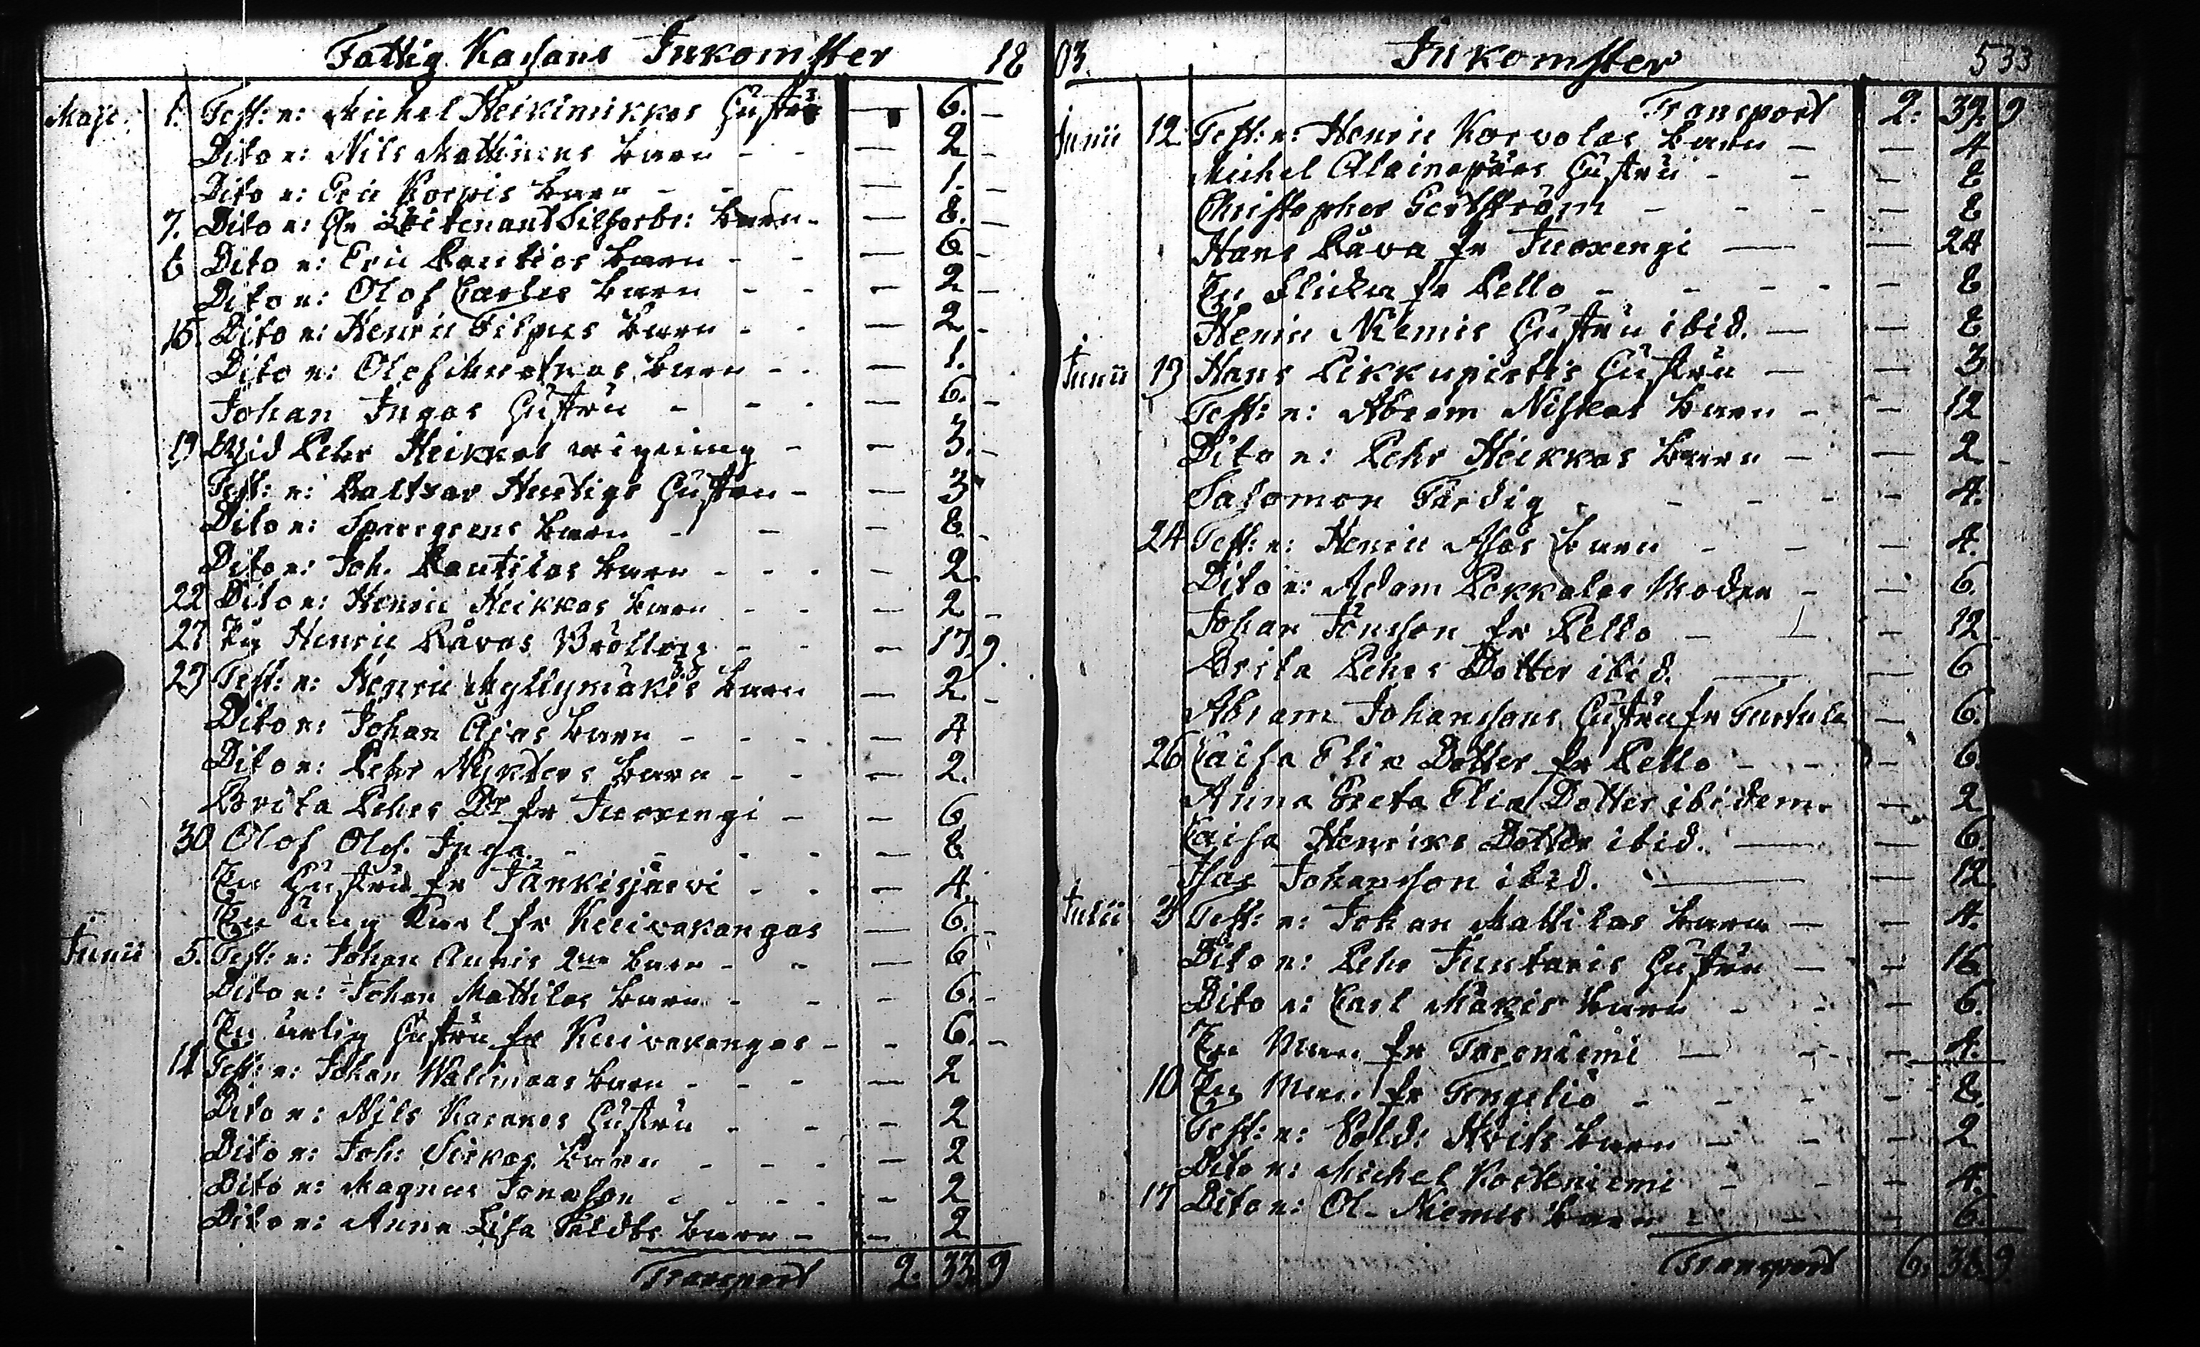 Fattig Kassans Inkomster 18
Maji 1. Test: e: Michel Heikinikkas Hustru — 6. –
Dito e: Nils Mattinens barn – – — 2 –
Dito e: Eric Korpis barn – – – — 1. –
7. Dito e: Leitenant Silferbr: barn – — 8. –
8 Dito e: Eric Rautios barn – – — 6. –
Dito e: Olof barn – – — 2 –
15. Dito e: Henric Filpus barn – – — 2. –
Dito e: Olof barn – – — 1.
Johan Ingos Hustru – – – — 6. –
19 Wid Pehr Heikkas wigning – — 3. –
Test: e: Baltzar Hurtigs Hustru – — 3
Dito e: barn – – — 8. –
Dito e: Joh. Rautilas barn – – – — 2
22 Dito e: Henric Heikkas barn – – — 2 –
27 På Henric Råvas Bröllop – – — 17. 9.
29 Test: e: Henric Myllymäkis barn — 2 –
Dito e: Johan barn – – – — 4
Dito e: Pehr barn – – — 2.
Brita Pehrs Dr fr Tuoxengi – — 6
30 Olof Olofs. Inga – – – — 8.
En Hustru fr Jänkisjärvi – – — 4.
En ung Karl fr Kuivakangas — 6. –
Junii 5. Test: e: Johan 2ne barn – – — 6
Dito e: Johan Mattilas barn – – – 6. –
En ärlig Hustru fr Kuivakangas – – 6. –
11 Test: e: Johan Wälimaas barn – – – — 2
Dito e: Nils Hustru – – — 2
Dito e: Joh: Sirkas barn – – – — 2
Dito e: Magnus Jonasson – – – – 2
Dito e: Anna Lisa barn – – 2
Transport 2. 33. 9
03. Inkomster 533
Transport 2. 39. 9
Junii 12 Test: e: Henric Korvolas barn – — 4
Michel Alainepääs Hustru – – — 8
Christopher – – – — 8
Hans Råva fr Tuoxengi — — 24
En flicka fr Pello – – – – — 8
Henric Niemis Hustru ibid. — — 8
Junii 13 Hans Hustru — — 3
Test: e: Abram Niskas barn – — 12
Dito e: Pehr Heikkas barn – — 2 –
Salomon Färdig – – – — 4.
24 Test: e: Henric barn – – — 4.
Dito e: Adam Pekkalas Moder – — 6.
Johan Jönsson fr Pello – – — 12
Brita Pehrs Dotter ibid. — — 6
Abram Johanssons Hustru fr Turtula — 6.
26 Caisa Elias Dotter fr Pello – – 6.
Anna Greta Elias Dotter ibidem. — 2
Caisa Henriks Dotter ibid. — — 6.
Isac Johansson ibid. — — 12.
Julii 3 Test: e: Johan Mattilas barn — — 4.
Dito e: Pehr Juntaris Hustru — — 16.
Dito e: Carl Mäkis barn – – — 6.
En Man fr Toroniemi — – — 4.
10 En Man fr Tengeliö – – – — 8.
Test: e: Sold: Hvits barn – – — 2
Dito e: Michel Kortteniemi – – — 4.
17 Dito e: Ol. Niemis barn – – — 6.
Transport 6. 38. 9.